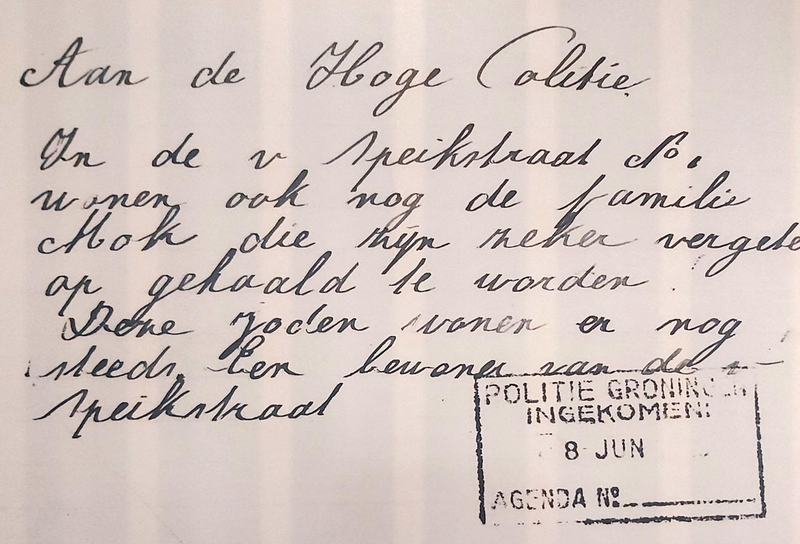 Aan de Hoge Politie.
In de v Speikstraat No.
wonen ook nog de familie
Mok die zijn zeker vergete
op gehaald te worden.
Deze joden wonen er nog
steeds. Een bewoner van de v
Speikstraat
POLITIE GRONINGEN
INGEKOMEN:
8 JUN
AGENDA No